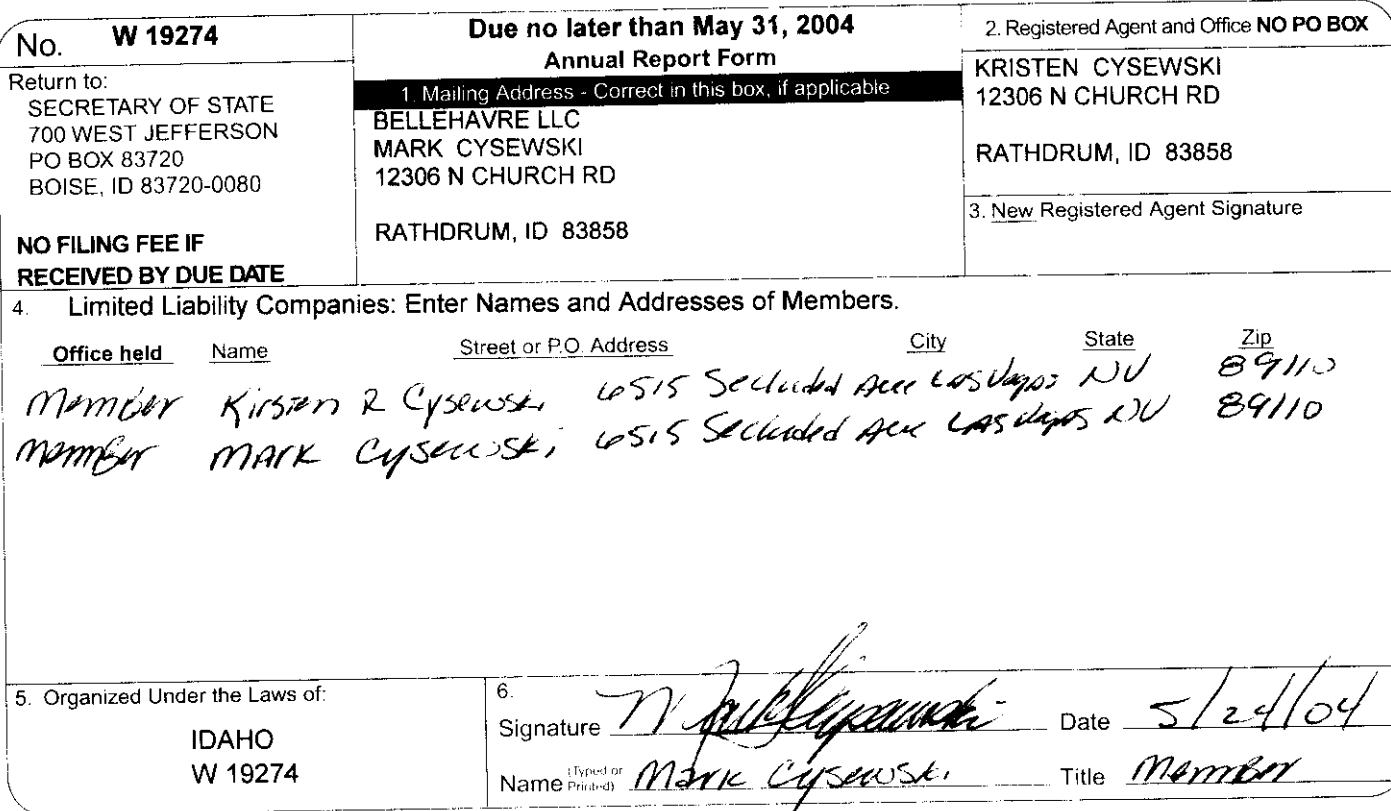 No. W 19274
Return to:
SECRETARY OF STATE
700 WEST JEFFERSON
PO BOX 83720
BOISE, ID 83720-0080
NO FILING FEE IF
RECEIVED BY DUE DATE
Due no later than May 31, 2004
Annual Report Form
1. Mailing Address - Correct in this box, if applicable
BELLEHAVRE LLC
MARK CYSEWSKI
12306 N CHURCH RD
RATHDRUM, ID 83858
2. Registered Agent and Office NO PO BOX
KRISTEN CYSEWSKI
12306 N CHURCH RD
RATHDRUM, ID 83858
3. New Registered Agent Signature
4. Limited Liability Companies: Enter Names and Addresses of Members.
Office held Name Street or P.O. Address City State Zip
Member Kirsten R Cysewski 6515 Secluded Ave Las Vegas NV 89110
Member Mark Cysewski 6515 Secluded Ave Las Vegas NV 89110
5. Organized Under the Laws of:
IDAHO
W 19274
6.
Signature Mark Cysewski Date 5/24/04
Name (Typed or Printed) Mark Cysewski Title Member